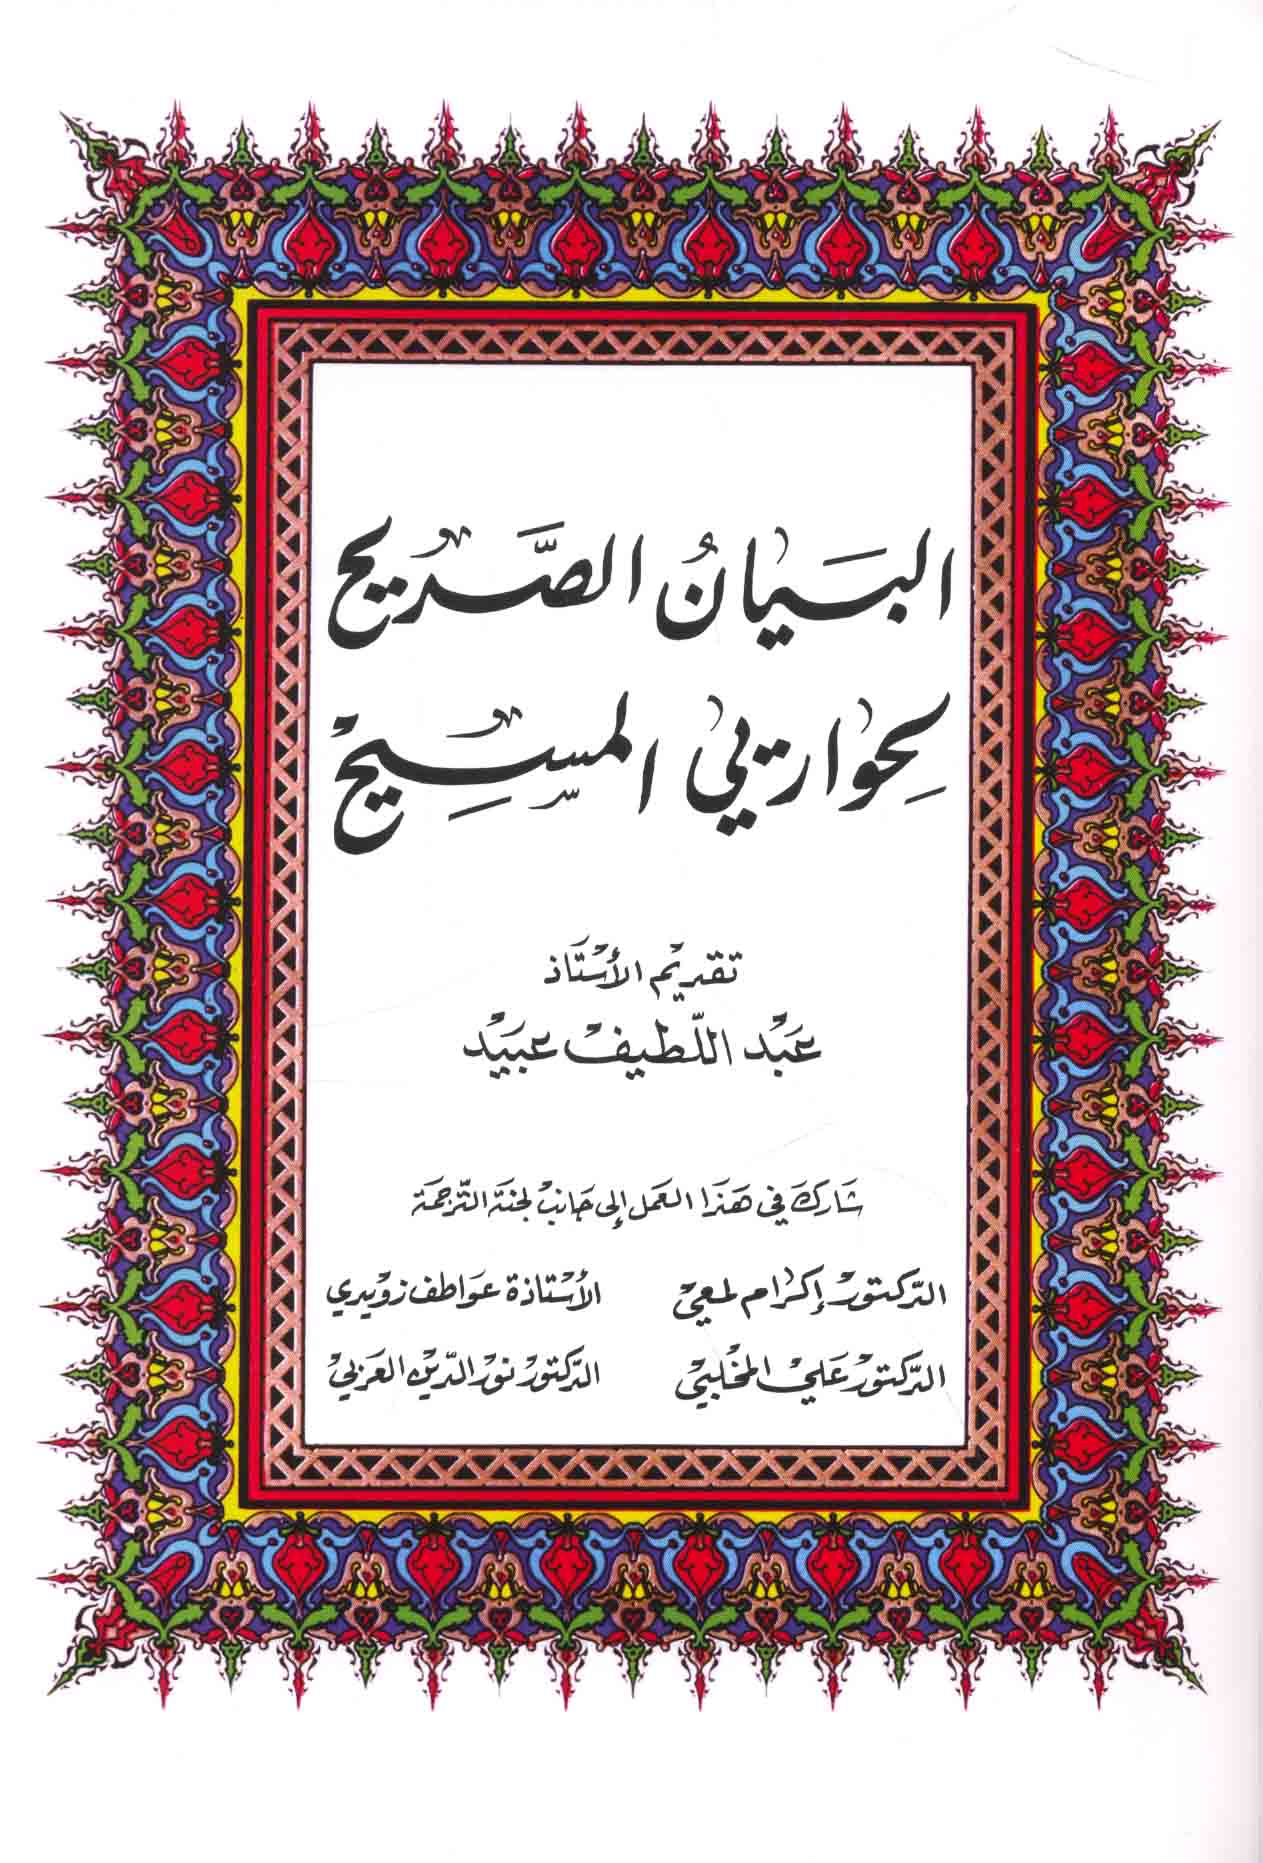 البيانُ الصَّريح
لحواريي المسيح
تقديم الأستاذ
عبد اللّطيف عبيد
شارك في هذا العمل إلى جانب لجنة التّرجمة
الدّكتور إكرام لمعي
الأستاذة عواطف زويدي
الدّكتور علي المخلبي
الدّكتور نور الدّين العزبي